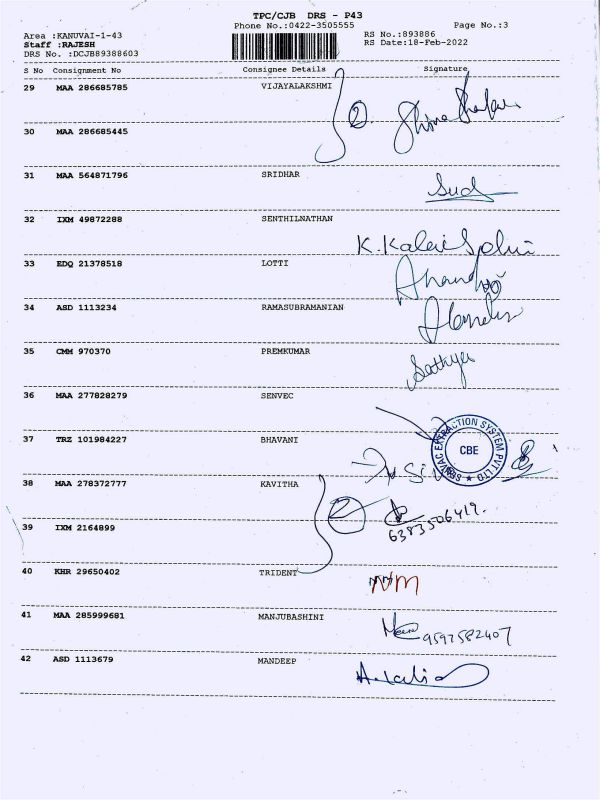 TPC/CJB DRS - P43
Phone No.:0422-3505555
Page No.:3
Area :KANUVAI-1-43
RS No.:893886
Staff :RAJESH
RS Date:18-Feb-2022
DRS No. :DCJB89388603
S No Consignment No Consignee Details Signature
29 MAA 286685785 VIJAYALAKSHMI
2
30 MAA 286685445
31 MAA 564871796 SRIDHAR
32 IXM 49872288 SENTHILNATHAN
33 EDQ 21378518 LOTTI
Anand
34 ASD 1113234 RAMASUBRAMANIAN
35 CMM 970370 PREMKUMAR
Sathya
36 MAA 277828279 SENVEC
SENVAC EXTRACTION SYSTEM PVT LTD
CBE
37 TRZ 101984227 BHAVANI
38 MAA 278372777 KAVITHA
2
39 IXM 2164899
6383506419.
40 KHR 29650402 TRIDENT
NM
41 MAA 285999681 MANJUBASHINI
9597582407
42 ASD 1113679 MANDEEP